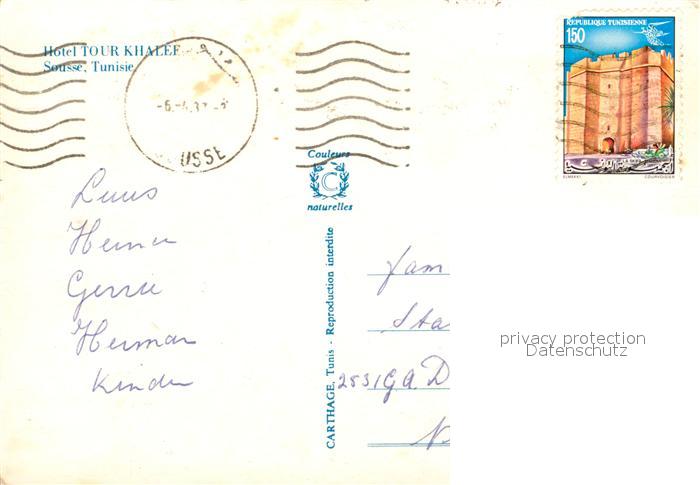 Hotel TOUR KHALEF
Sousse, Tunisie
USSE
REPUBLIQUE TUNISIENNE
150
ELMEKKI COURVOISIER
Couleurs
C
naturelles
CARTHAGE, Tunis - Reproduction interdite
Gerrie
Herman
Kinder
Fam
Sta
2531 G.A. D
N
privacy protection
Datenschutz